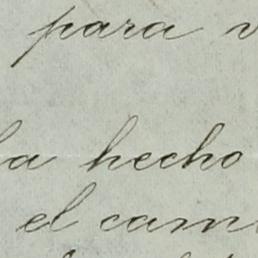 para
ha hecho
el cam